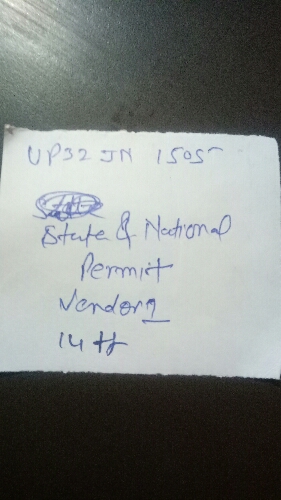 UP32 JN 1505
State & National
Permit
Vendor
14 ft